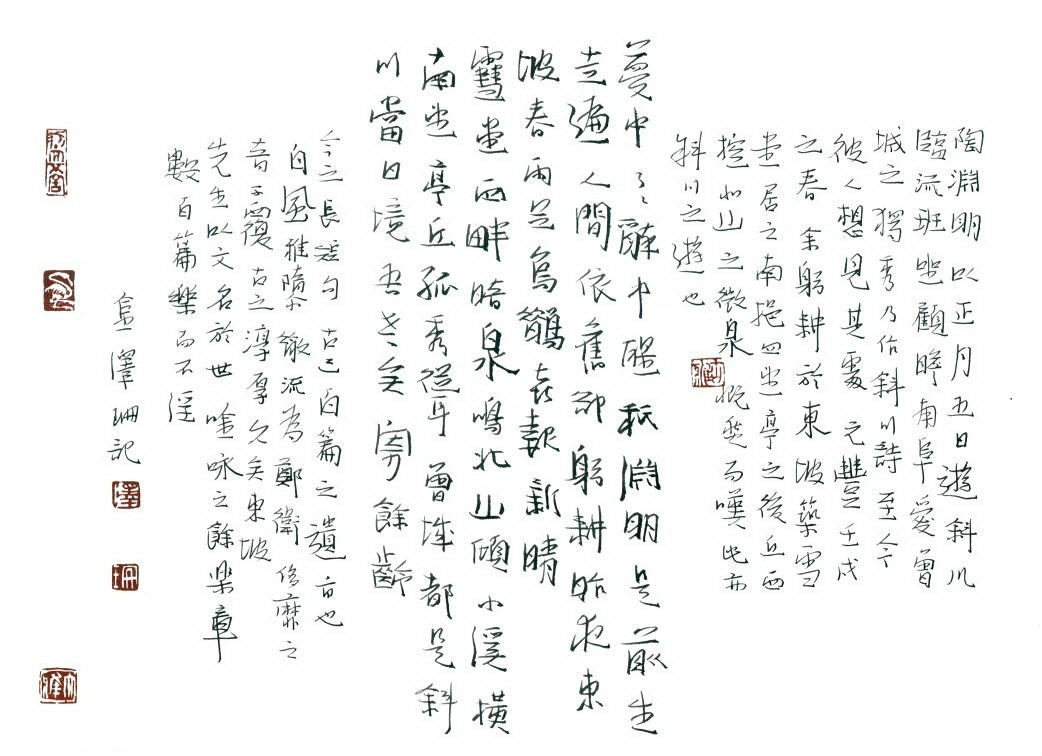 陶淵明以正月五日遊斜川
臨流班坐顧瞻南阜愛曾
城之獨秀乃作斜川詩至今
使人想見其處元豐壬戌
之春余躬耕於東坡築雪
堂居之南挹四望亭之後丘西
控北山之微泉慨然而嘆此亦
斜川之遊也
夢中了了醉中醒秖淵明是前生
走遍人間依舊卻躬耕昨夜東
坡春雨足烏鵲喜報新晴
雪堂西畔暗泉鳴北山傾小溪橫
南望亭丘孤秀聳曾城都是斜
川當日境吾老矣寄餘齡
今之長短句古三百篇之遺音也
自風雅隋徵流為鄭衛侈靡之
音不覆古之淳厚久矣東坡
先生以文名於世吟詠之餘樂章
數百篇樂而不淫
澤珊記
澤
珊